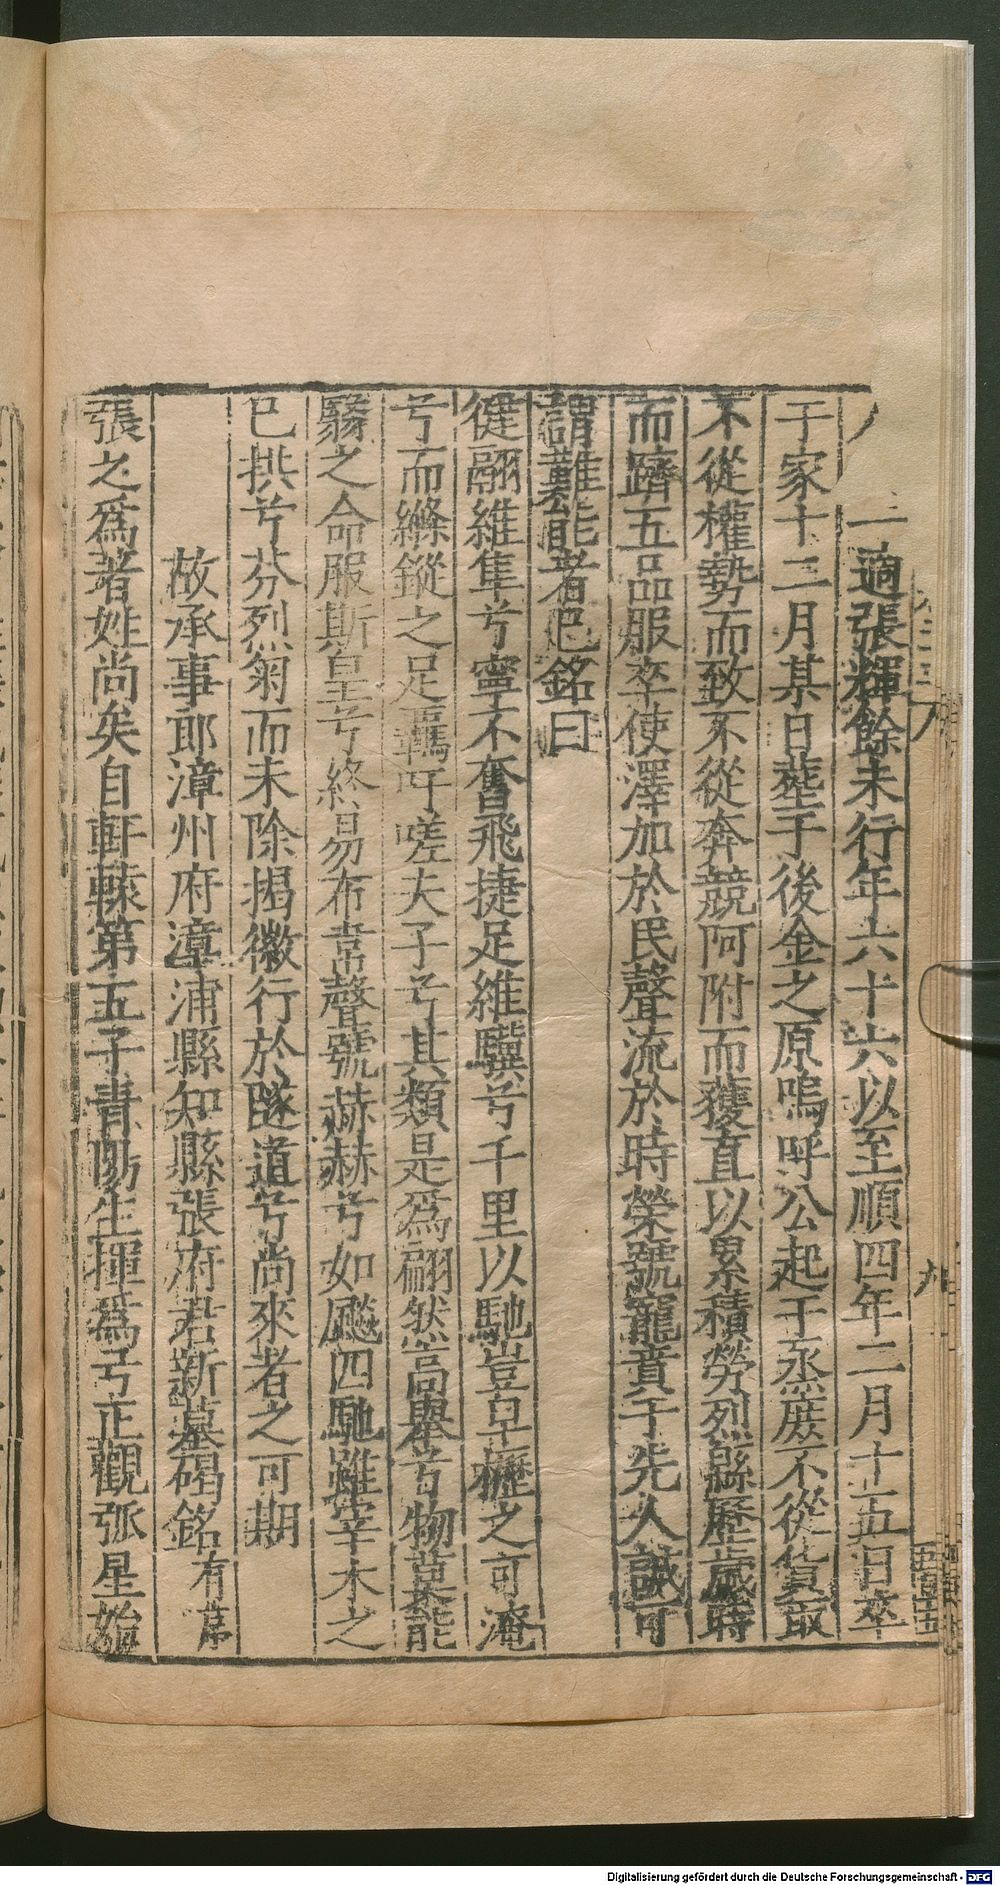 一適張輝餘未行年六十六以至順四年二月十五日卒
于家十二月某日塟于後金之原嗚呼公起于烝庶不從貨取
不從權勢而致不從奔競阿附而獲直以累積勞烈緜歷歲時
而躋五品服卒使澤加於民聲流於時榮號寵賁于先人誠可
謂難能者已銘曰
翩維隼兮寧不奮飛捷足維驥兮千里以馳豈皁櫪之可淹
兮而縧鏇之足羈吁嗟夫子兮其類是為翩然高舉兮物莫能
之命服斯皇兮終易布韋聲號赫赫兮如飈四馳雖宰木之
已拱兮芬烈菊而未除揭徽行於隧道兮尚來者之可期
故承事郎漳州府漳浦縣知縣張府君新墓碣銘有序
張之爲著姓尚矣自軒轅第五子青陽生揮爲弓正觀弧星始
九
Digitalisierung gefördert durch die Deutsche Forschungsgemeinschaft - DFG